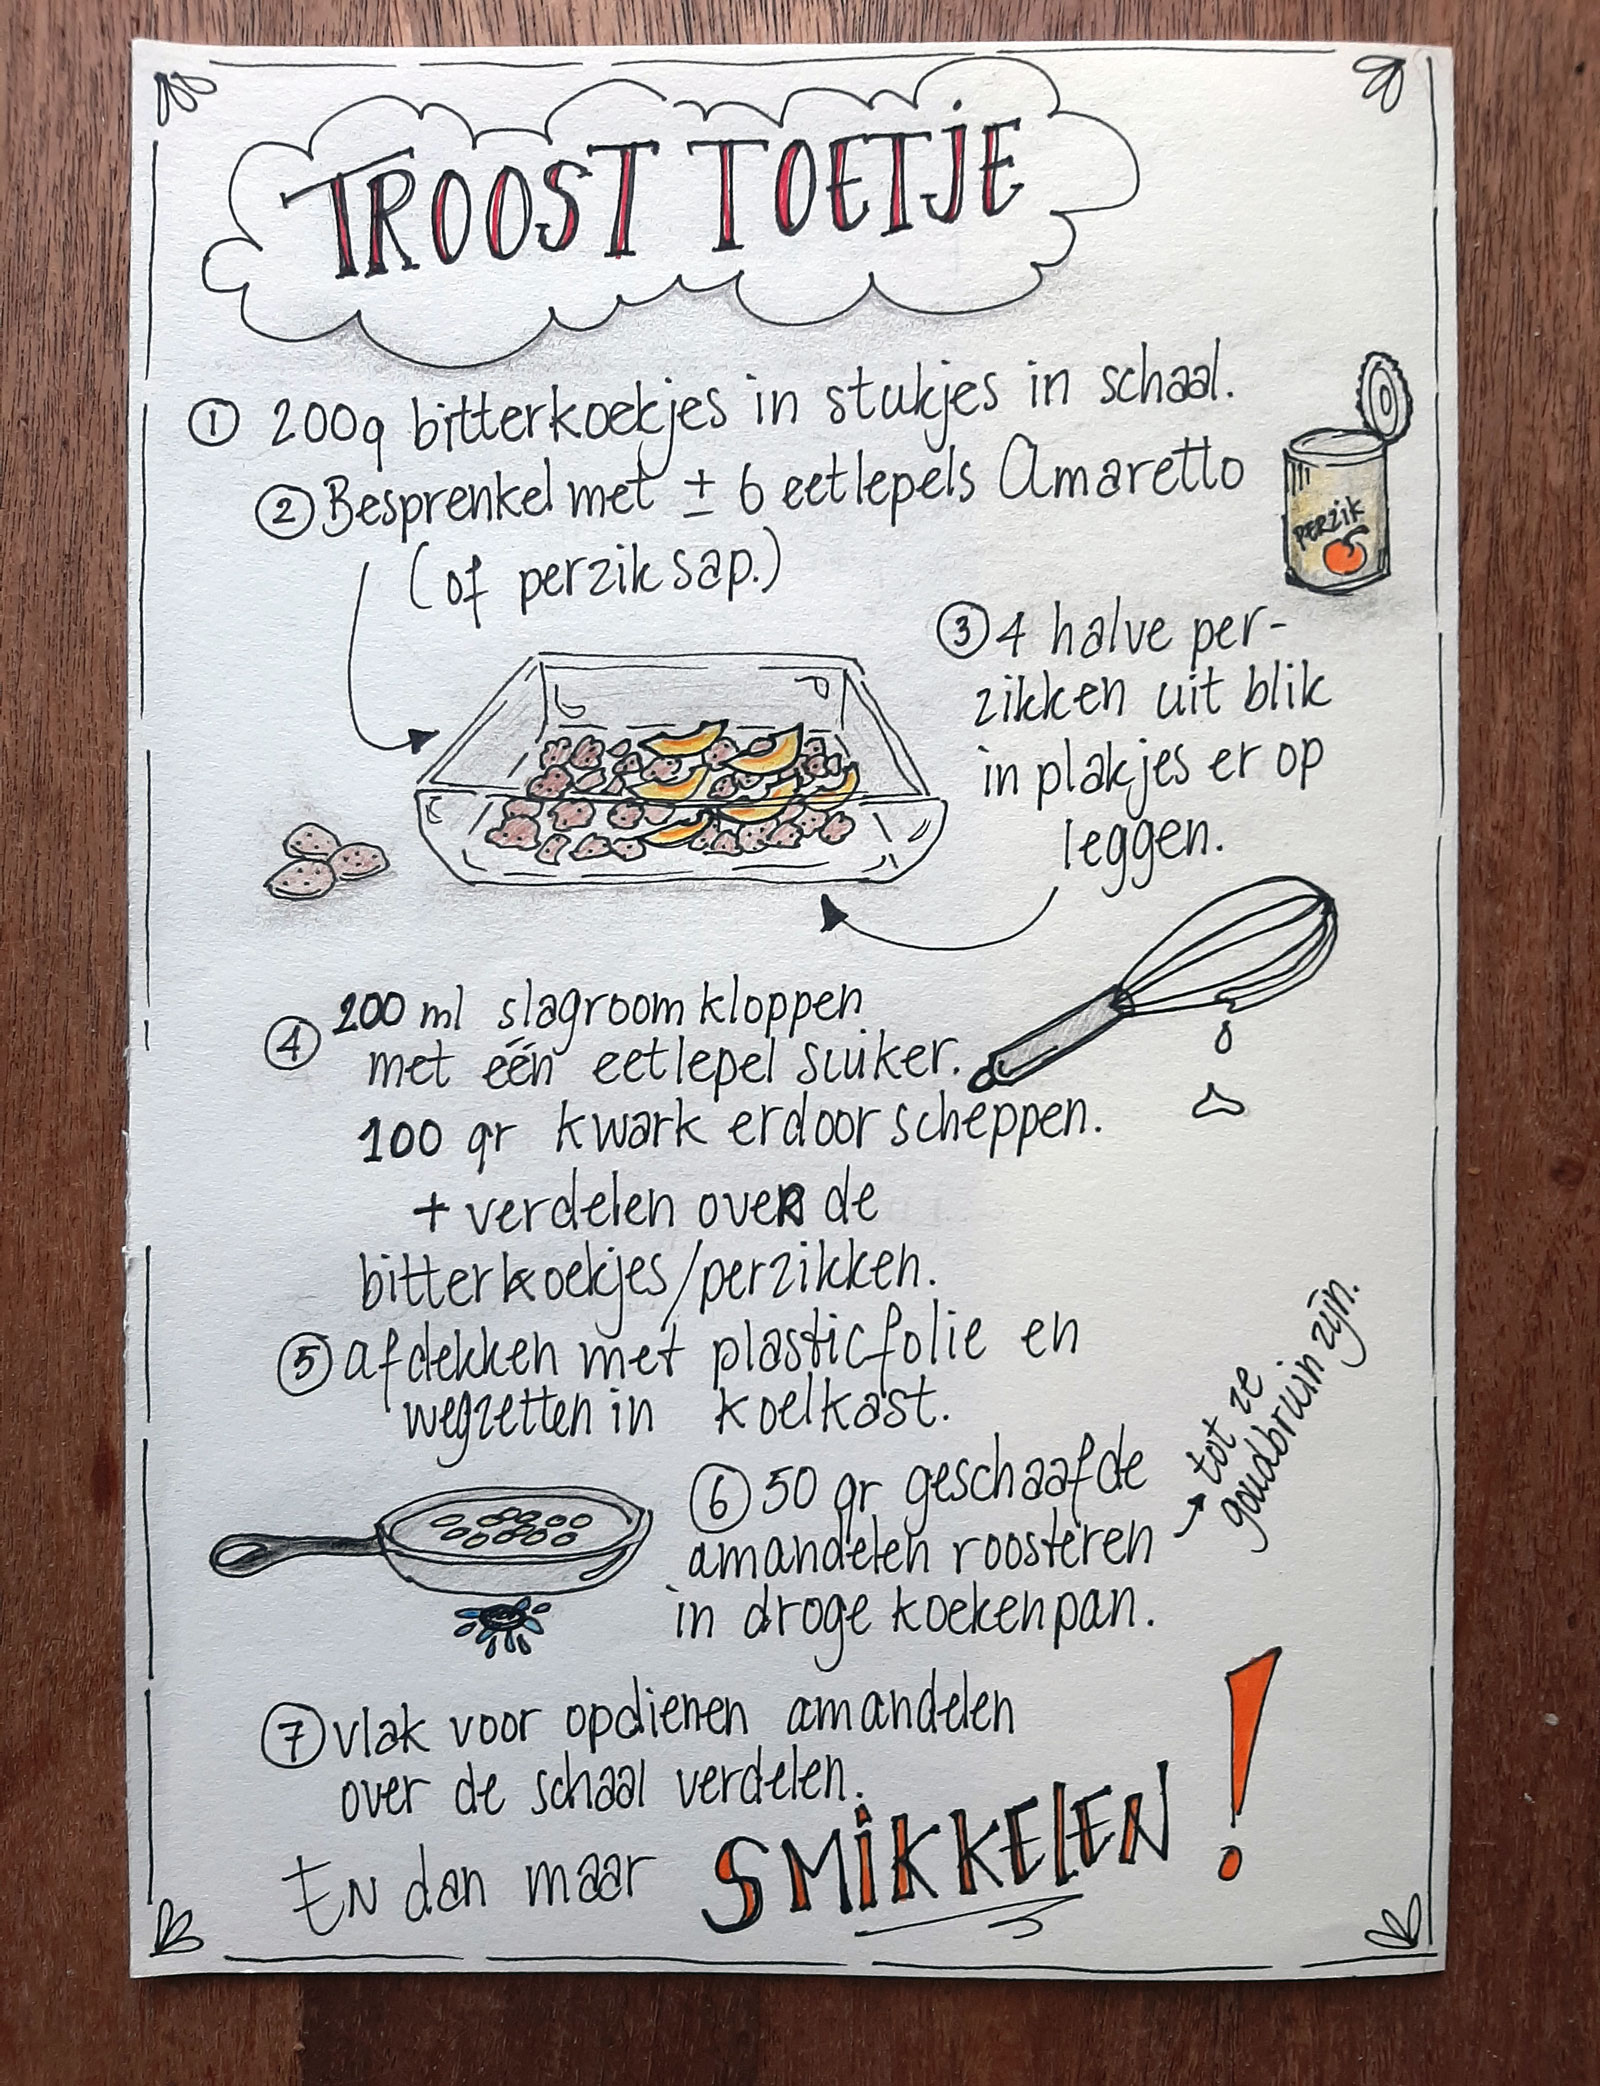 TROOST TOETJE
① 200g bitterkoekjes in stukjes in schaal.
② Besprenkel met ± 6 eetlepels Amaretto
(of perziksap.)
PERZIK
③ 4 halve per-
zikken uit blik
in plakjes er op
leggen.
④ 200 ml slagroom kloppen
met één eetlepel suiker.
100 gr kwark erdoor scheppen.
+ verdelen over de
bitterkoekjes/perzikken.
⑤ afdekken met plasticfolie en
wegzetten in koelkast.
⑥ 50 gr geschaafde
amandelen roosteren
in droge koekenpan.
→ tot ze
goudbruin zijn.
⑦ vlak voor opdienen amandelen
over de schaal verdelen.
EN dan maar SMIKKELEN!